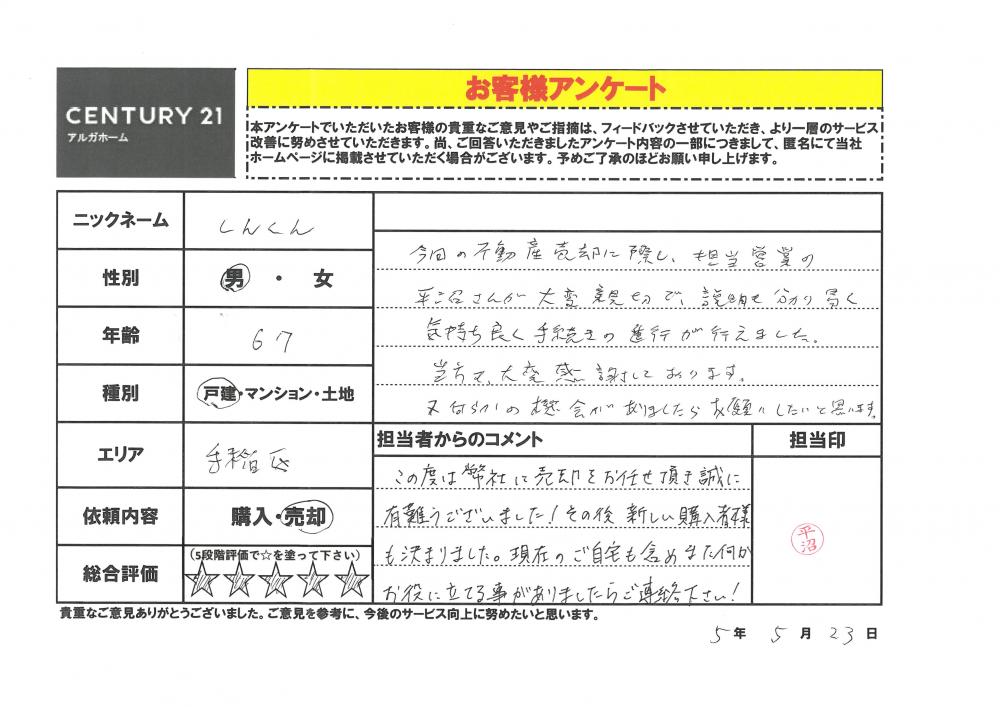 CENTURY 21
アルガホーム
お客様アンケート
本アンケートでいただいたお客様の貴重なご意見やご指摘は、フィードバックさせていただき、より一層のサービス
改善に努めさせていただきます。尚、ご回答いただきましたアンケート内容の一部につきまして、匿名にて当社
ホームページに掲載させていただく場合がございます。予めご了承のほどお願い申し上げます。
ニックネーム
しんくん
性別
男 ・ 女
年齢
67
種別
戸建・マンション・土地
エリア
手稲区
依頼内容
購入・売却
総合評価
(5段階評価で☆を塗って下さい)
☆☆☆☆☆
今回の不動産売却に際し、担当営業の
平沼さんが大変親切で、説明も分かり易く
気持ち良く手続きの進行が行えました。
当方で、大変感謝しております。
又何らかの機会がありましたらお願いしたいと思います。
担当者からのコメント
この度は弊社に売却をお任せ頂き誠に
有難うございました!その後新しい購入者様
も決まりました。現在のご自宅も含めまた何か
お役に立てる事がありましたらご連絡下さい!
担当印
平沼
貴重なご意見ありがとうございました。ご意見を参考に、今後のサービス向上に努めたいと思います。
5年 5月 23日